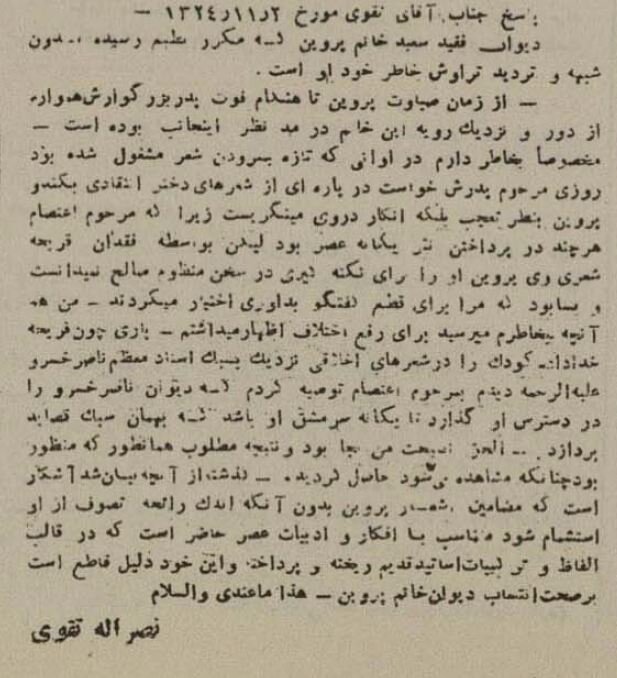 پاسخ جناب آقای تقوی مورخ ۲ر۱۱ر۱۳۲۴ —
دیوان فقید سعید خانم پروین که مکرر بطبع رسیده بدون
شبهه و تردید تراوش خاطر خود او است .
— از زمان صباوت پروین تا هنگام فوت پدر بزرگوارش همواره
از دور و نزدیك رویه این خانم در مد نظر اینجانب بوده است —
مخصوصاً بخاطر دارم در اوانی که تازه بسرودن شعر مشغول شده بود
روزی مرحوم پدرش خواست در پاره ای از شعرهای دختر انتقادی بکند و
پروین بنظر تعجب بلکه انکار در وی مینگریست زیرا که مرحوم اعتصام
هرچند در پرداختن نثر یگانه عصر بود لیکن بواسطه فقدان قریحه
شعری وی پروین او را برای نکته گیری در سخن منظوم صالح نمیدانست
و بسا بود که مرا برای قطع گفتگو بداوری اختیار میکردند — من هم
آنچه بخاطرم میرسید برای رفع اختلاف اظهار میداشتم — باری چون قریحه
خداداد کودك را در شعرهای اخلاقی نزدیك بسبك استاد معظم ناصر خسرو
علیه الرحمه دیدم بمرحوم اعتصام توصیه کردم که دیوان ناصر خسرو را
در دسترس او گذارد تا یگانه سرمشق او باشد که بهمان سبك قصاید
پردازد — الحق نصیحت من بجا بود و نتیجه مطلوب همانطور که منظور
بود چنانکه مشاهده می شود حاصل گردید . — گذشته از آنچه بیان شد آشکار
است که مضامین اشعار پروین بدون آنکه اندك رائحه تصوف از او
استشمام شود مناسب با افکار و ادبیات عصر حاضر است که در قالب
الفاظ و ترکیبات اساتید قدیم ریخته و پرداخته و این خود دلیل قاطع است
بر صحت انتساب دیوان خانم پروین — هذا ما عندی والسلام
نصر اله تقوی